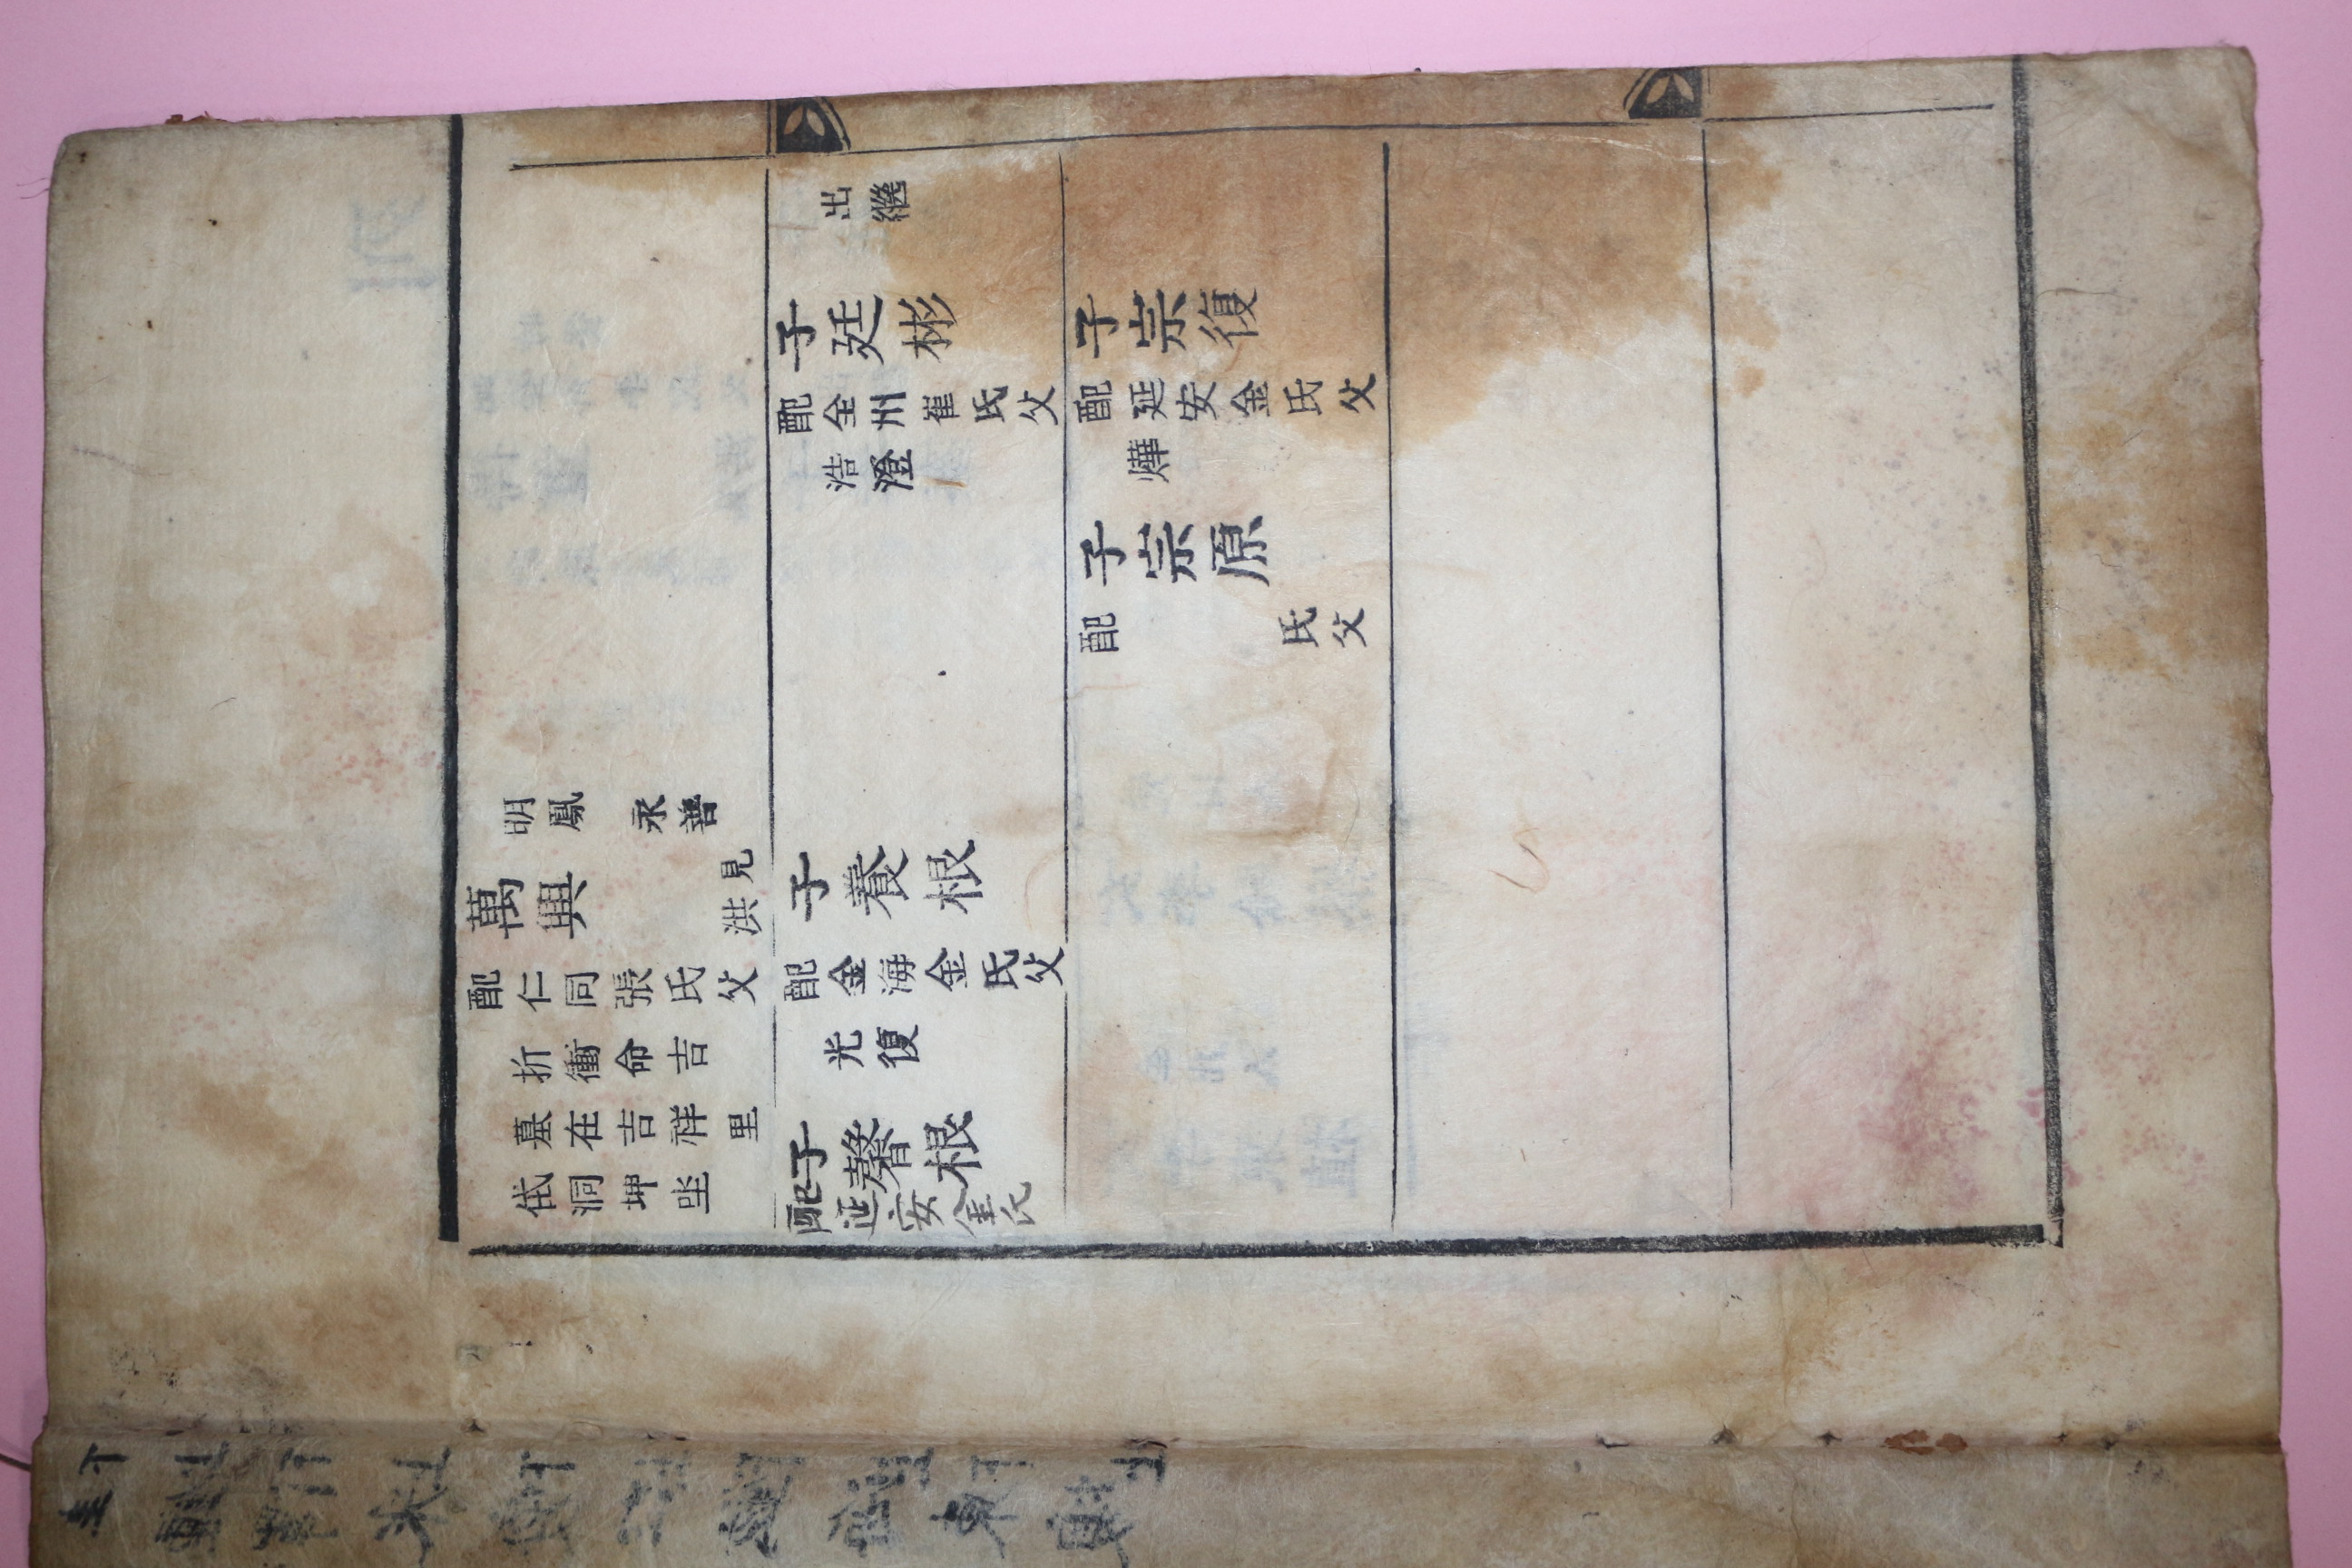 明鳳 永善
萬興
見洪
配仁同張氏父
折衝命吉
墓在吉祥里
洞坤坐
出繼
子廷彬
配全州崔氏父
浩澄
子養根
配金海金氏父
光復
子馨根
配延安金氏
子宗復
配延安金氏父
燁
子宗原
配 氏父